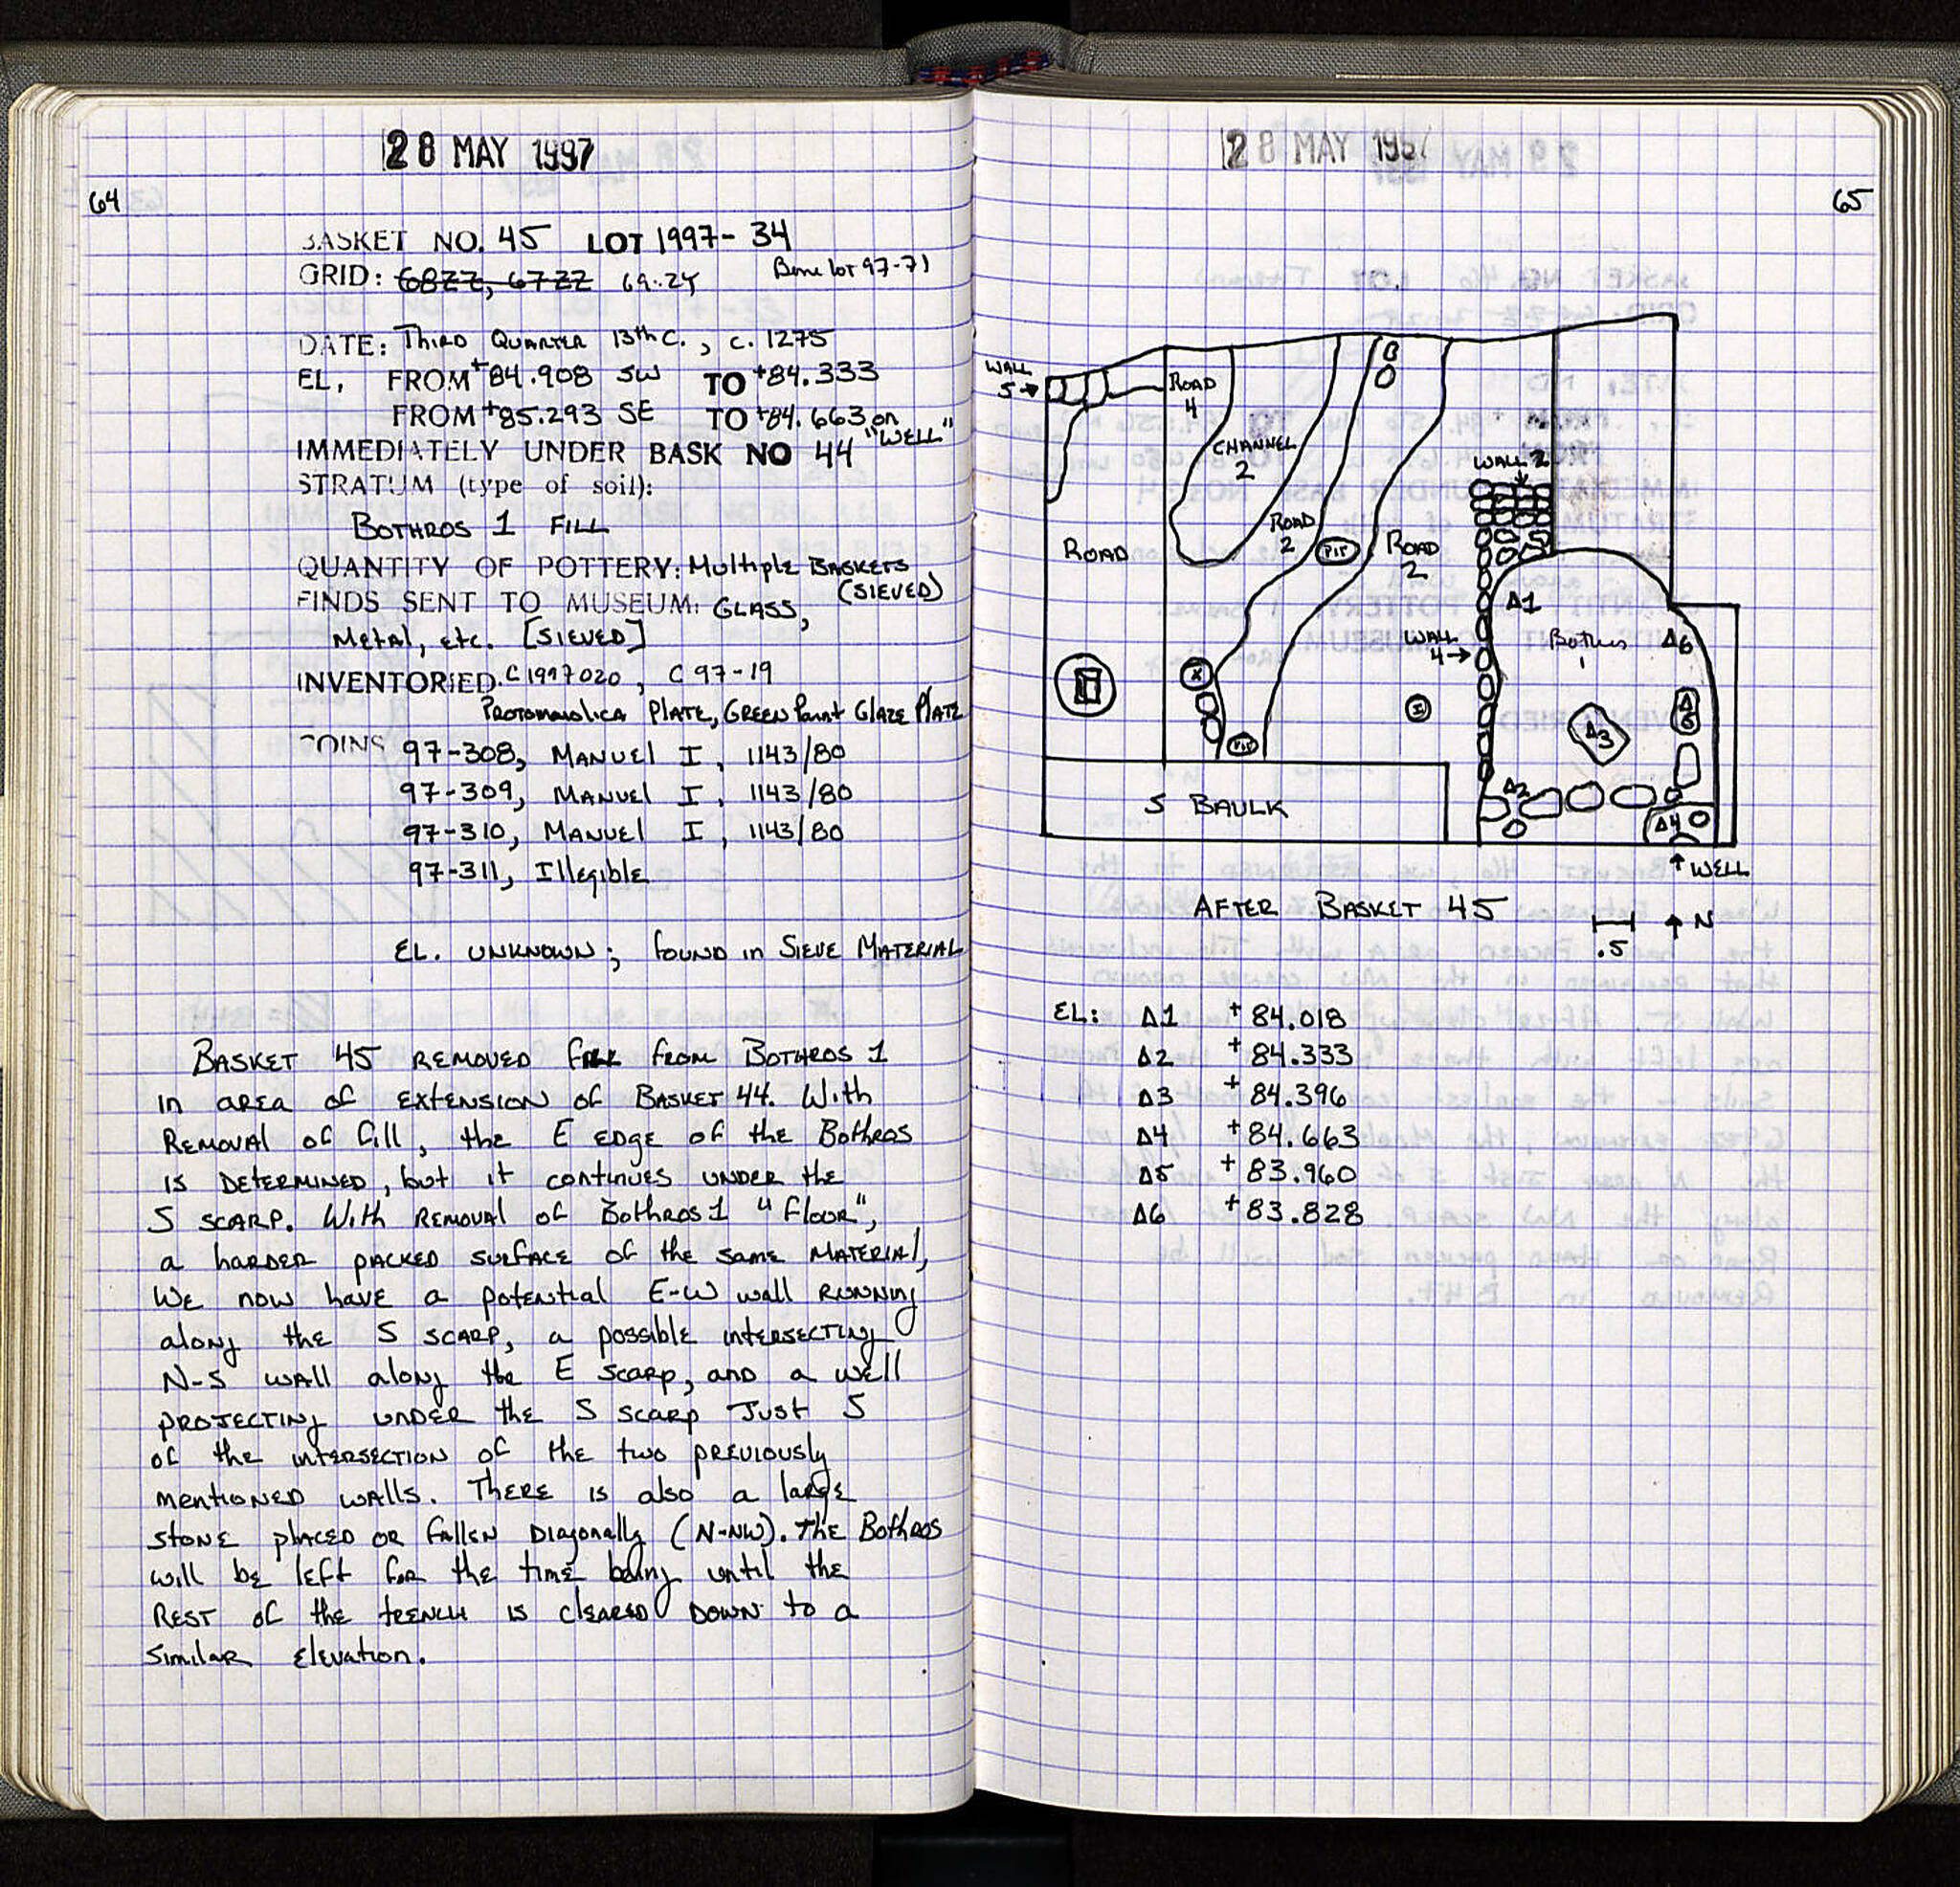 28 MAY 1997
64
BASKET NO. 45 LOT 1997-34
GRID: 68ZZ, 67ZZ
Bone lot 97-71
DATE: Third Quarter 13th C., c. 1275
EL, FROM +84.908 SW TO +84.333
FROM +85.293 SE TO +84.663 on "WELL"
IMMEDIATELY UNDER BASK NO 44
STRATUM (type of soil):
BOTHROS 1 FILL
QUANTITY OF POTTERY: Multiple BASKETS (SIEVED)
FINDS SENT TO MUSEUM: GLASS,
Metal, etc. [SIEVED]
INVENTORIED. C 1997020, C 97-19
Protomaiolica Plate, Green Paint Glaze Plate
COINS 97-308, MANUEL I, 1143/80
97-309, MANUEL I, 1143/80
97-310, MANUEL I, 1143/80
97-311, Illegible
EL. UNKNOWN; found in SIEVE MATERIAL
BASKET 45 REMOVED fill from BOTHROS 1
in area of EXTENSION of BASKET 44. With
REMOVAL of fill, the E EDGE of the Bothros
is DETERMINED, but it continues UNDER the
S SCARP. With REMOVAL of Bothros 1 "floor",
a harder packed surface of the same MATERIAL,
We now have a potential E-W wall RUNNING
along the S SCARP, a possible intersecting
N-S wall along the E scarp, and a well
projecting UNDER the S scarp Just S
of the intersection of the two previously
mentioned walls. There is also a large
stone placed or fallen Diagonally (N-NW). The Bothros
will be left for the time being until the
REST of the trench is cleared DOWN to a
Similar Elevation.
28 MAY 199
65
WALL 5→
ROAD 4
CHANNEL 2
WALL 2
ROAD
ROAD 2
PIT
ROAD 2
Δ1
WALL 4→
Bothros 1
Δ6
X
I
Δ5
Δ3
PIT
Δ2
Δ4
S BAULK
↑ WELL
AFTER BASKET 45
.5
↑ N
EL: Δ1 +84.018
Δ2 +84.333
Δ3 +84.396
Δ4 +84.663
Δ5 +83.960
Δ6 +83.828